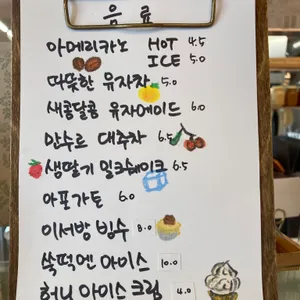 음료
아메리카노 HOT 4.5
ICE 5.0
따뜻한 유자차 5.0
새콩달콤 유자에이드 6.0
만수르 대추차 6.5
생딸기 밀크쉐이크 6.5
아포가토 6.0
이서방 빙수 8.0
쑥떡엔 아이스 10.0
허니 아이스크림 4.0